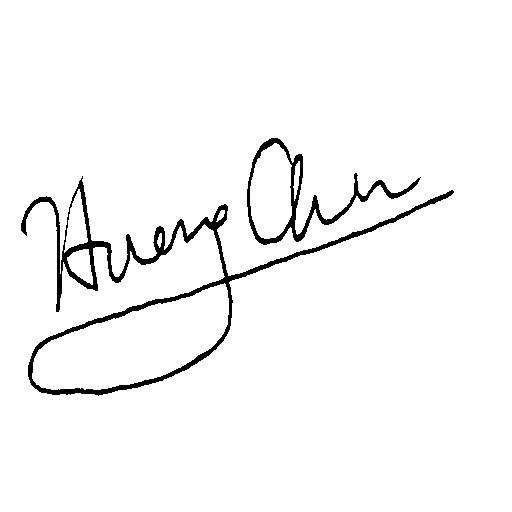 Hueng Chun